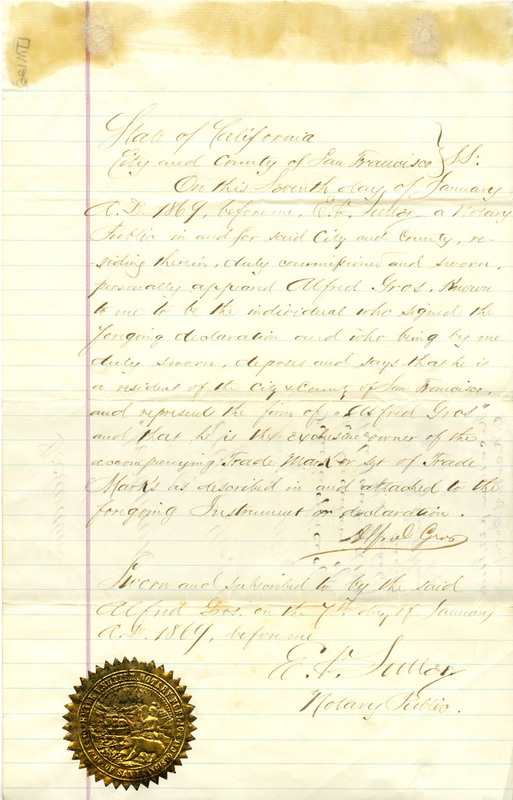 State of California
City and County of San Francisco } SS:
On this Seventh day of January
A.D. 1869, before me, E. V. Sutter a Notary
Public in and for said City and County, re-
-siding therein, duly commissioned and sworn,
personally appeared Alfred Gros. Known
to me to be the individual who signed the
foregoing declaration and who being by me
duly sworn, deposes and says that he is
a resident of the City & County of San Francisco,
and represents the firm of "Alfred Gros"
and that he is the exclusive owner of the
accompanying Trade Mark or set of Trade
Marks as described in and attached to the
foregoing Instrument or declaration.
Alfred Gros
Sworn and subscribed to by the said
Alfred Gros. on the 7th day of January
A.D. 1869, before me
E. V. Sutter
Notary Public.